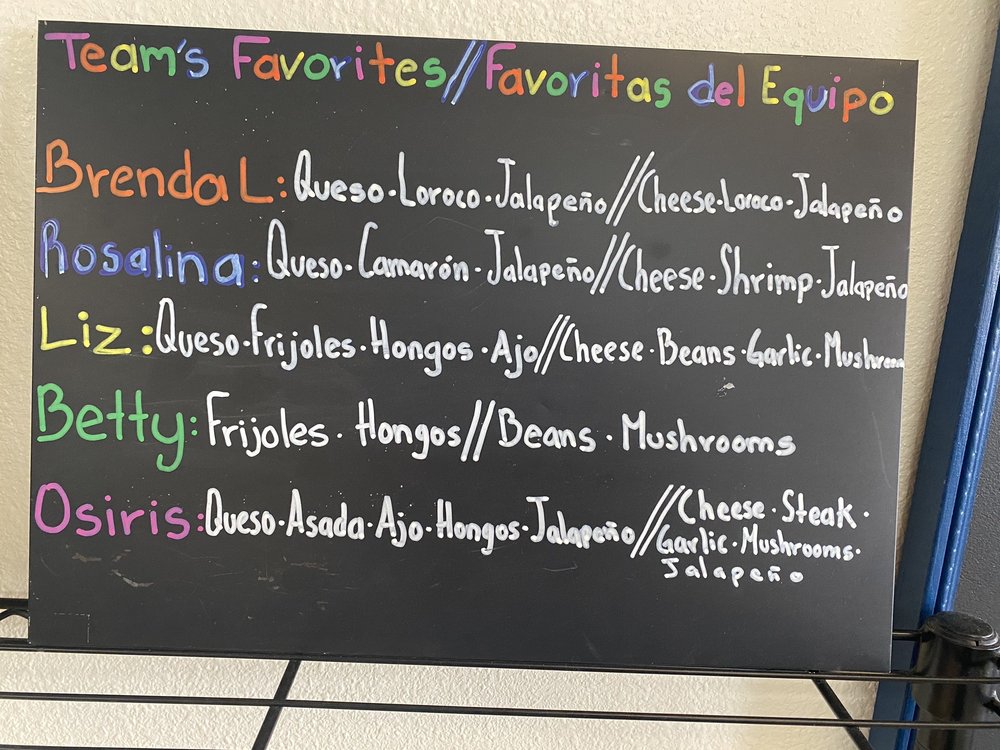 Team's Favorites//Favoritas del Equipo
Brenda L: Queso·Loroco·Jalapeño//Cheese·Loroco·Jalapeño
Rosalina: Queso·Camarón·Jalapeño//Cheese·Shrimp·Jalapeño
Liz: Queso·Frijoles·Hongos·Ajo//Cheese·Beans·Garlic·Mushroom
Betty: Frijoles·Hongos//Beans·Mushrooms
Osiris: Queso·Asada·Ajo·Hongos·Jalapeño//Cheese·Steak·
Garlic·Mushrooms·
Jalapeño